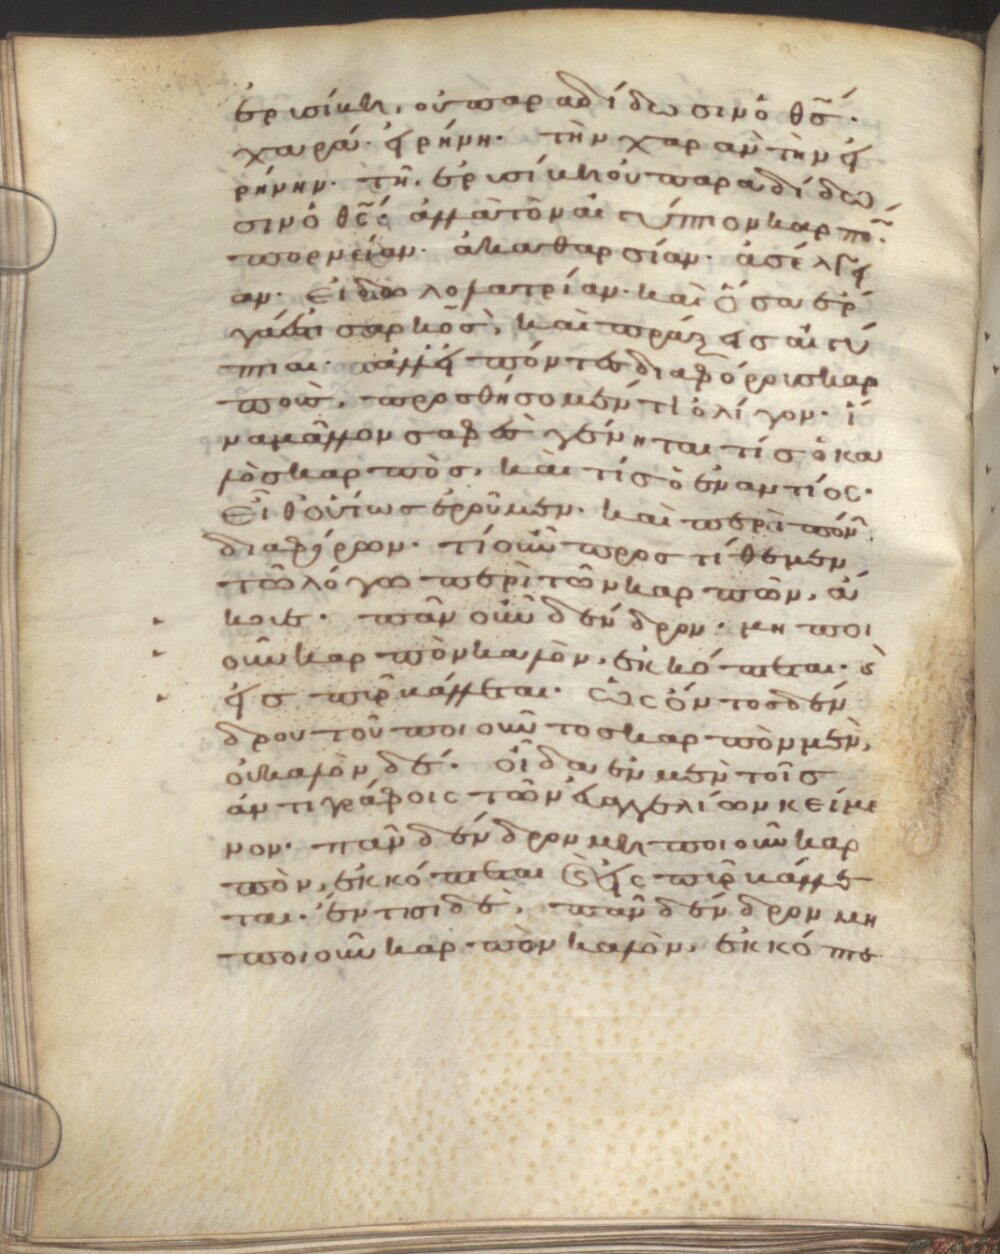 ἐρυσίβη, οὐ παραδίδωσιν ὁ θ̅ς̅·
χαρά· εἰρήνη· τὴν χαρὰν τὴν εἰ
ρήνην· τῆ ἐρυσίβη οὐ παραδίδω
σιν ὁ θ̅ς̅· ἀλλὰ τὸν αἰγύπτιον καρπὸ̅·
πορνείαν· ἀκαθαρσίαν· ἀσέλγει
αν· εἰδωλολατρίαν· καὶ ὅσα ἐρ
σαρκὸς, καὶ πράξεις αἰγύ
πτιαι·
ποὺς, προσθήσομέν τι ὀλίγον· ἵ
να μᾶλλον σαφὲς γένηται τίς ὁ κα
λὸς καρπὸς, καὶ τίς ὁ ἐναντίος·
εἶθ' οὕτως ἐροῦμεν· καὶ περὶ τῶν
διαφόρων· τί οὖν προστίθεμεν
τῶ λόγω περὶ τῶν καρπῶν, ἄ
κουε· πᾶν οὖν δένδρον· μὴ ποι
οῦν καρπὸν καλὸν, ἐκκόπτεται· καὶ
εἰς πῦρ βάλλεται· ὡς ὄντος δέν
δρου τοῦ ποιοῦντος καρπὸν μὲν,
οὐ καλὸν δέ· οἶδα ἐν μὲν τοῖς
ἀντιγράφοις τῶν εὐαγγελίων κείμε
νον· πᾶν δένδρον μὴ ποιοῦν καρ
πὸν, ἐκκόπτεται καὶ εἰς πῦρ βάλλε
ται· ἔν τισι δὲ, πᾶν δένδρον μὴ
ποιοῦν καρπὸν καλὸν, ἐκκόπτε